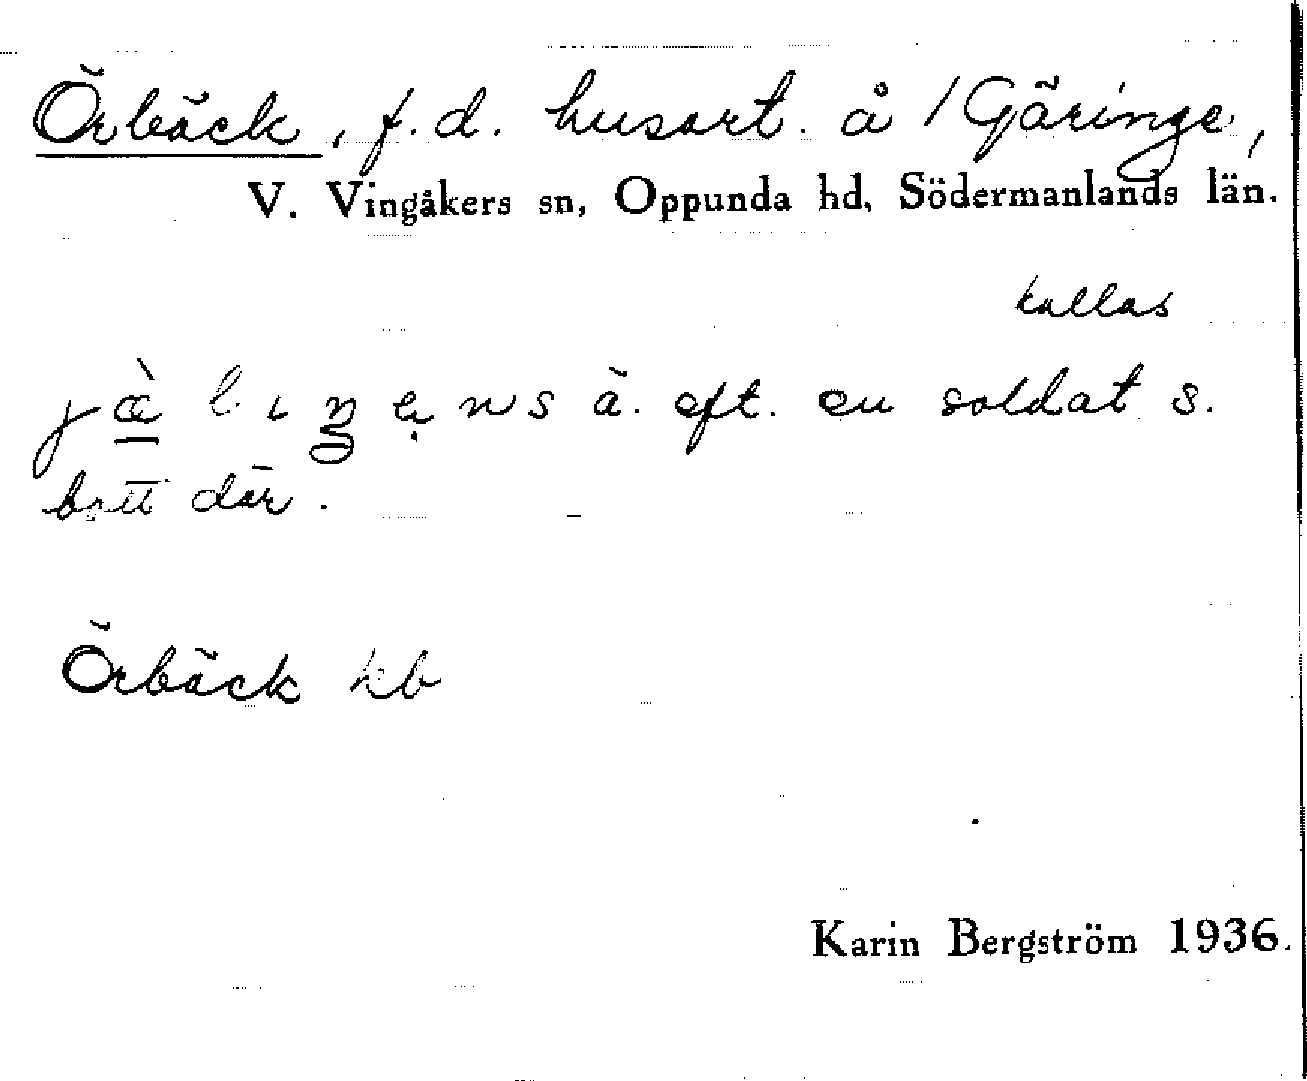 Örbäck, f.d. husart. å / Gäringe,
V. Vingåkers sn, Oppunda hd, Södermanlands län.
kallas
ä. eft. en soldat s.
bott där.
Örbäck kb
Karin Bergström 1936.